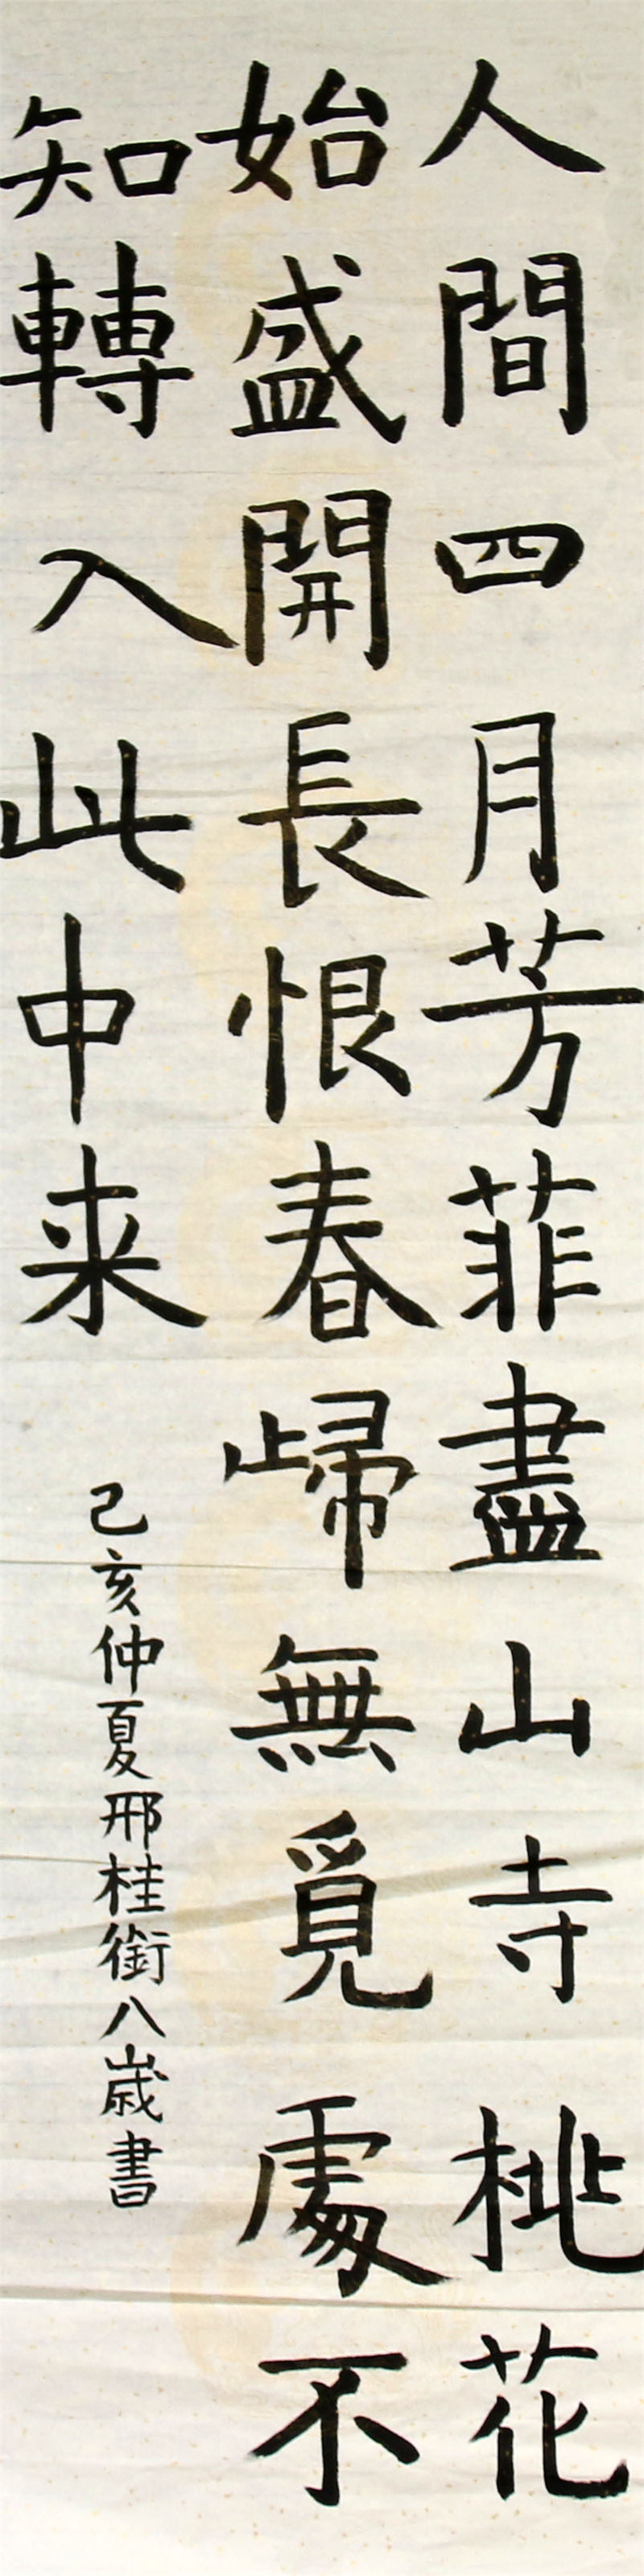 人間四月芳菲盡山寺桃花
始盛開長恨春歸無覓處不
知轉入此中来
己亥仲夏邢桂銜八歲書